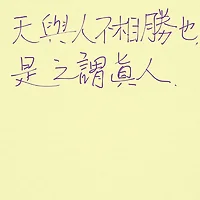 天與人不相勝也,
是之謂眞人.